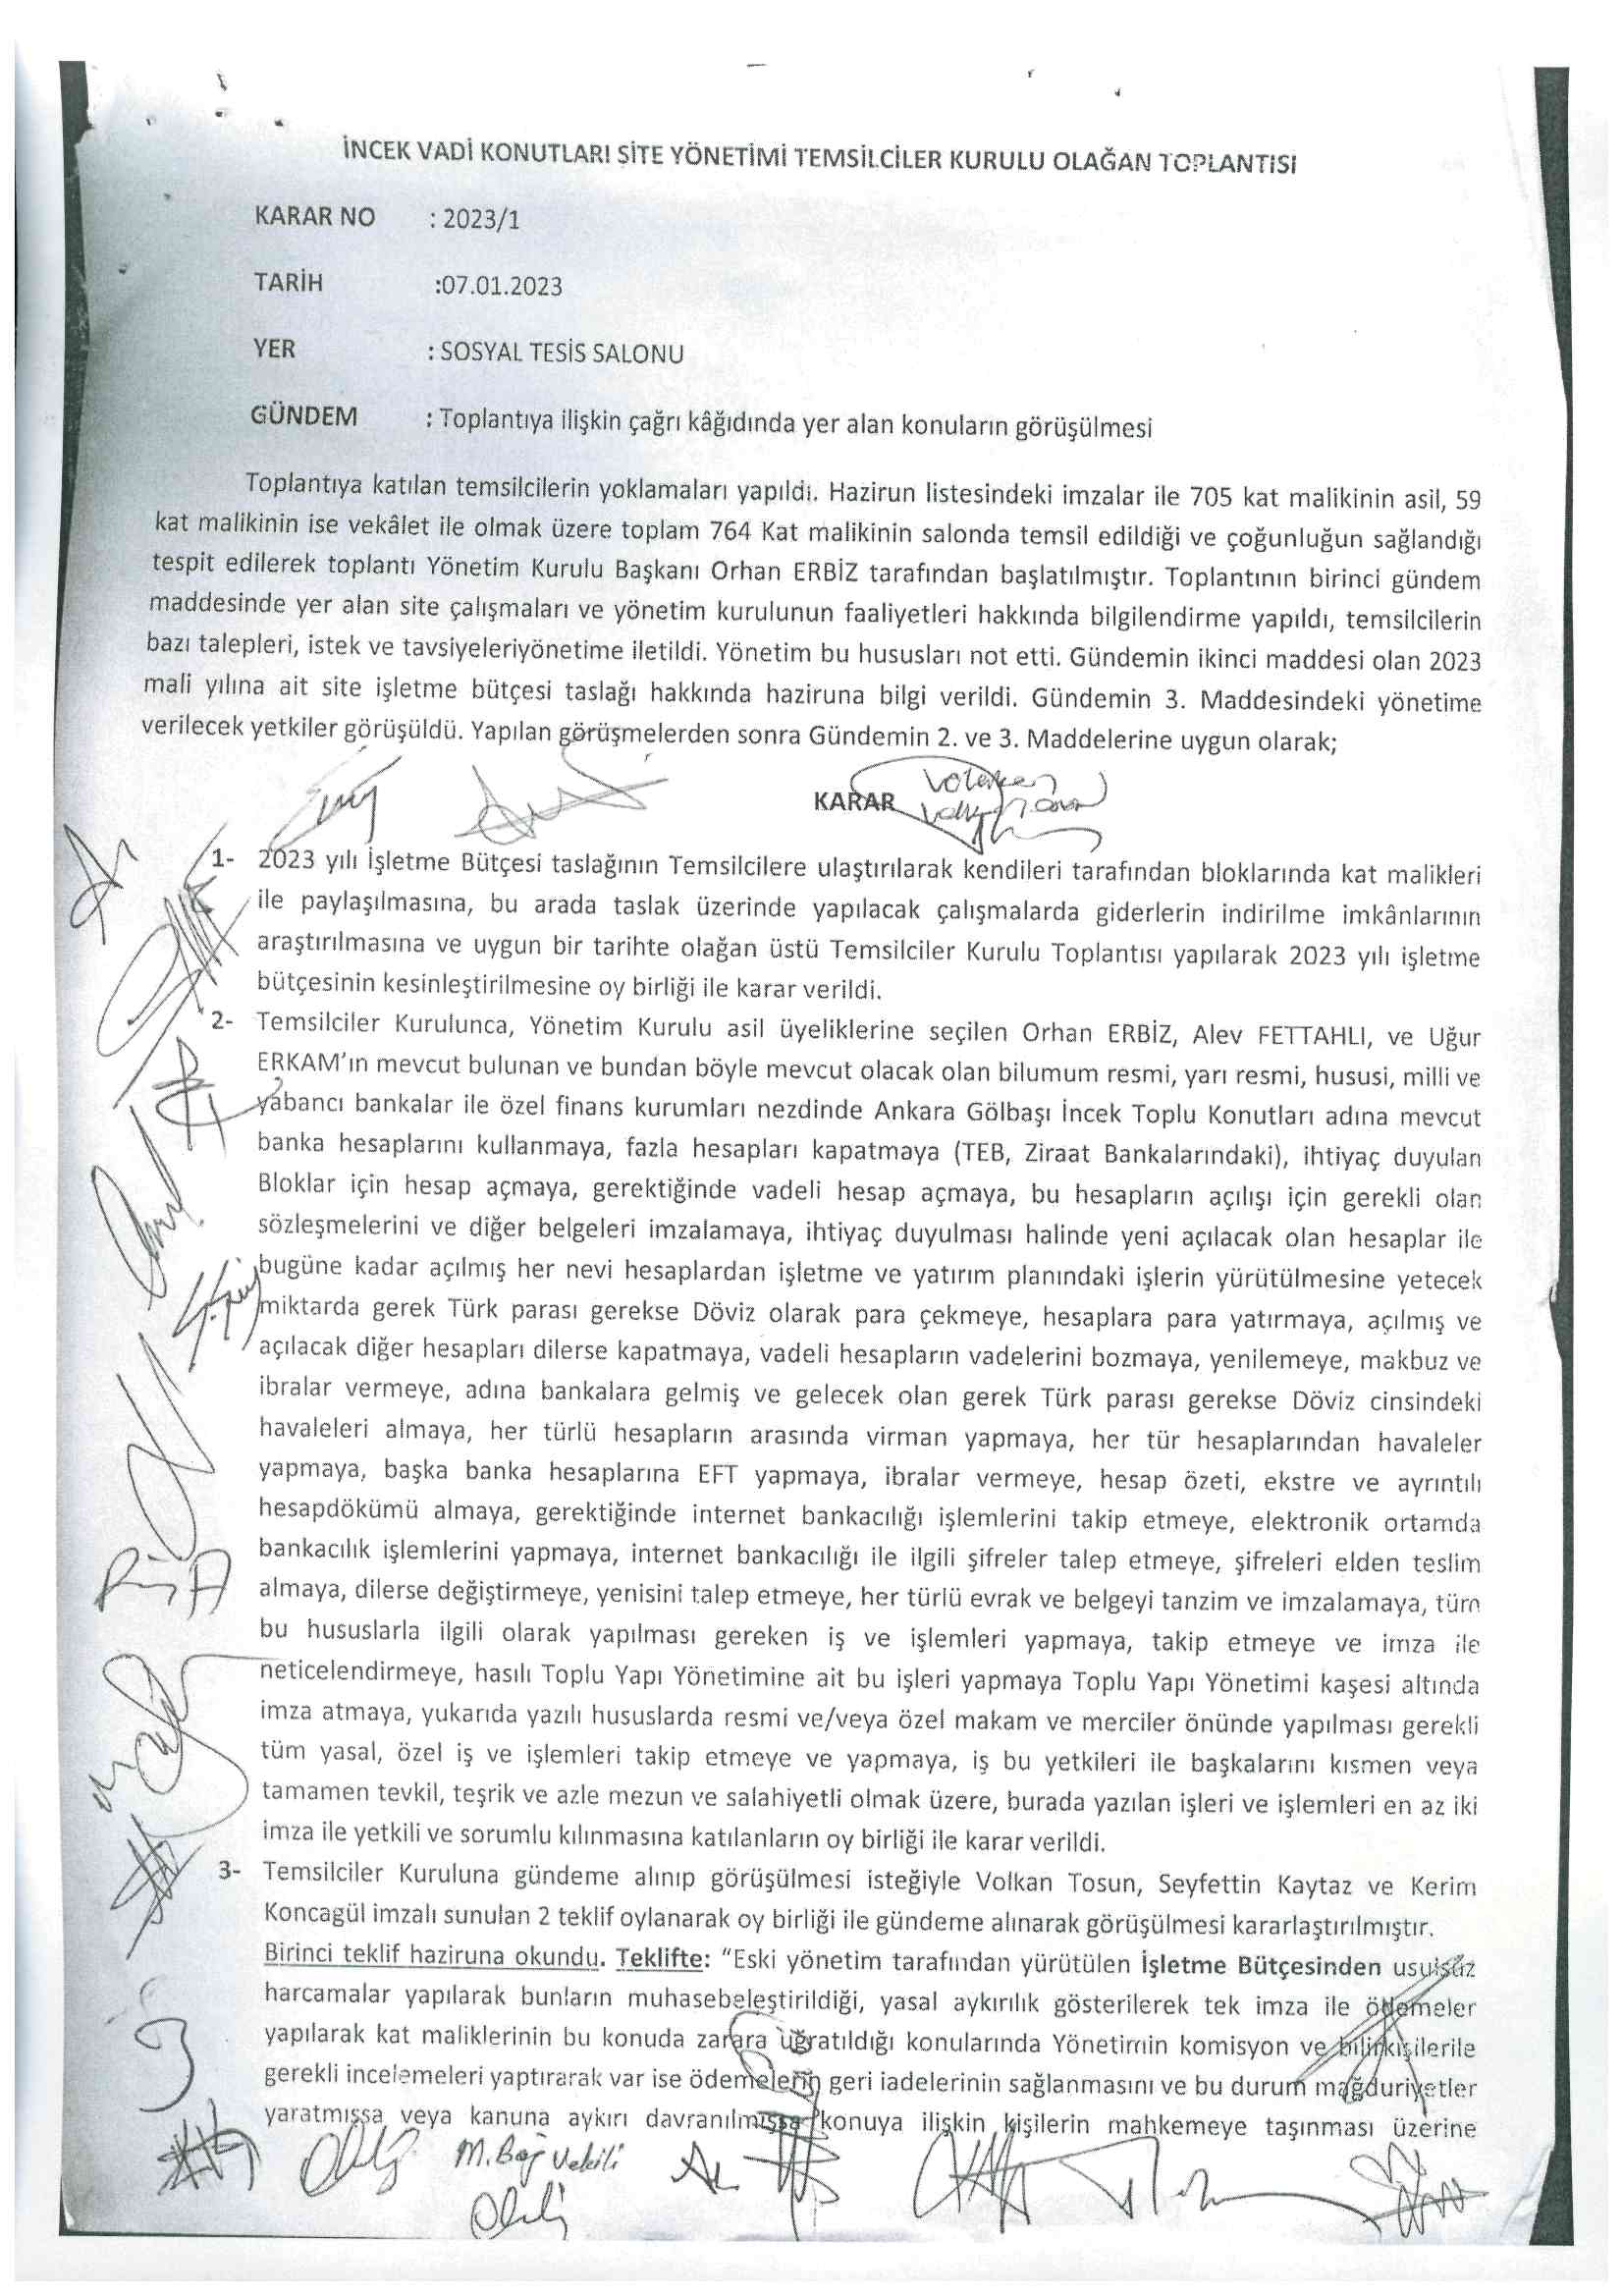 İNCEK VADİ KONUTLARI SİTE YÖNETİMİ TEMSİLCİLER KURULU OLAĞAN TOPLANTISI
KARAR NO : 2023/1
TARİH :07.01.2023
YER : SOSYAL TESİS SALONU
GÜNDEM : Toplantıya ilişkin çağrı kâğıdında yer alan konuların görüşülmesi
Toplantıya katılan temsilcilerin yoklamaları yapıldı. Hazirun listesindeki imzalar ile 705 kat malikinin asil, 59
kat malikinin ise vekâlet ile olmak üzere toplam 764 Kat malikinin salonda temsil edildiği ve çoğunluğun sağlandığı
tespit edilerek toplantı Yönetim Kurulu Başkanı Orhan ERBİZ tarafından başlatılmıştır. Toplantının birinci gündem
maddesinde yer alan site çalışmaları ve yönetim kurulunun faaliyetleri hakkında bilgilendirme yapıldı, temsilcilerin
bazı talepleri, istek ve tavsiyeleriyönetime iletildi. Yönetim bu hususları not etti. Gündemin ikinci maddesi olan 2023
mali yılına ait site işletme bütçesi taslağı hakkında haziruna bilgi verildi. Gündemin 3. Maddesindeki yönetime
verilecek yetkiler görüşüldü. Yapılan görüşmelerden sonra Gündemin 2. ve 3. Maddelerine uygun olarak;
KARAR
1- 2023 yılı İşletme Bütçesi taslağının Temsilcilere ulaştırılarak kendileri tarafından bloklarında kat malikleri
ile paylaşılmasına, bu arada taslak üzerinde yapılacak çalışmalarda giderlerin indirilme imkânlarının
araştırılmasına ve uygun bir tarihte olağan üstü Temsilciler Kurulu Toplantısı yapılarak 2023 yılı işletme
bütçesinin kesinleştirilmesine oy birliği ile karar verildi.
2- Temsilciler Kurulunca, Yönetim Kurulu asil üyeliklerine seçilen Orhan ERBİZ, Alev FETTAHLI, ve Uğur
ERKAM'ın mevcut bulunan ve bundan böyle mevcut olacak olan bilumum resmi, yarı resmi, hususi, milli ve
yabancı bankalar ile özel finans kurumları nezdinde Ankara Gölbaşı İncek Toplu Konutları adına mevcut
banka hesaplarını kullanmaya, fazla hesapları kapatmaya (TEB, Ziraat Bankalarındaki), ihtiyaç duyulan
Bloklar için hesap açmaya, gerektiğinde vadeli hesap açmaya, bu hesapların açılışı için gerekli olan
sözleşmelerini ve diğer belgeleri imzalamaya, ihtiyaç duyulması halinde yeni açılacak olan hesaplar ile
bugüne kadar açılmış her nevi hesaplardan işletme ve yatırım planındaki işlerin yürütülmesine yetecek
miktarda gerek Türk parası gerekse Döviz olarak para çekmeye, hesaplara para yatırmaya, açılmış ve
açılacak diğer hesapları dilerse kapatmaya, vadeli hesapların vadelerini bozmaya, yenilemeye, makbuz ve
ibralar vermeye, adına bankalara gelmiş ve gelecek olan gerek Türk parası gerekse Döviz cinsindeki
havaleleri almaya, her türlü hesapların arasında virman yapmaya, her tür hesaplarından havaleler
yapmaya, başka banka hesaplarına EFT yapmaya, ibralar vermeye, hesap özeti, ekstre ve ayrıntılı
hesapdökümü almaya, gerektiğinde internet bankacılığı işlemlerini takip etmeye, elektronik ortamda
bankacılık işlemlerini yapmaya, internet bankacılığı ile ilgili şifreler talep etmeye, şifreleri elden teslim
almaya, dilerse değiştirmeye, yenisini talep etmeye, her türlü evrak ve belgeyi tanzim ve imzalamaya, tüm
bu hususlarla ilgili olarak yapılması gereken iş ve işlemleri yapmaya, takip etmeye ve imza ile
neticelendirmeye, hasılı Toplu Yapı Yönetimine ait bu işleri yapmaya Toplu Yapı Yönetimi kaşesi altında
imza atmaya, yukarıda yazılı hususlarda resmi ve/veya özel makam ve merciler önünde yapılması gerekli
tüm yasal, özel iş ve işlemleri takip etmeye ve yapmaya, iş bu yetkileri ile başkalarını kısmen veya
tamamen tevkil, teşrik ve azle mezun ve salahiyetli olmak üzere, burada yazılan işleri ve işlemleri en az iki
imza ile yetkili ve sorumlu kılınmasına katılanların oy birliği ile karar verildi.
3- Temsilciler Kuruluna gündeme alınıp görüşülmesi isteğiyle Volkan Tosun, Seyfettin Kaytaz ve Kerim
Koncagül imzalı sunulan 2 teklif oylanarak oy birliği ile gündeme alınarak görüşülmesi kararlaştırılmıştır.
Birinci teklif haziruna okundu. Teklifte: "Eski yönetim tarafından yürütülen İşletme Bütçesinden usulsüz
harcamalar yapılarak bunların muhasebeleştirildiği, yasal aykırılık gösterilerek tek imza ile ödemeler
yapılarak kat maliklerinin bu konuda zarara uğratıldığı konularında Yönetimin komisyon ve bilirkişilerile
gerekli incelemeleri yaptırarak var ise ödemelerin geri iadelerinin sağlanmasını ve bu durum mağduriyetler
yaratmışsa veya kanuna aykırı davranılmışsa konuya ilişkin kişilerin mahkemeye taşınması üzerine
M. Bağ Vekili